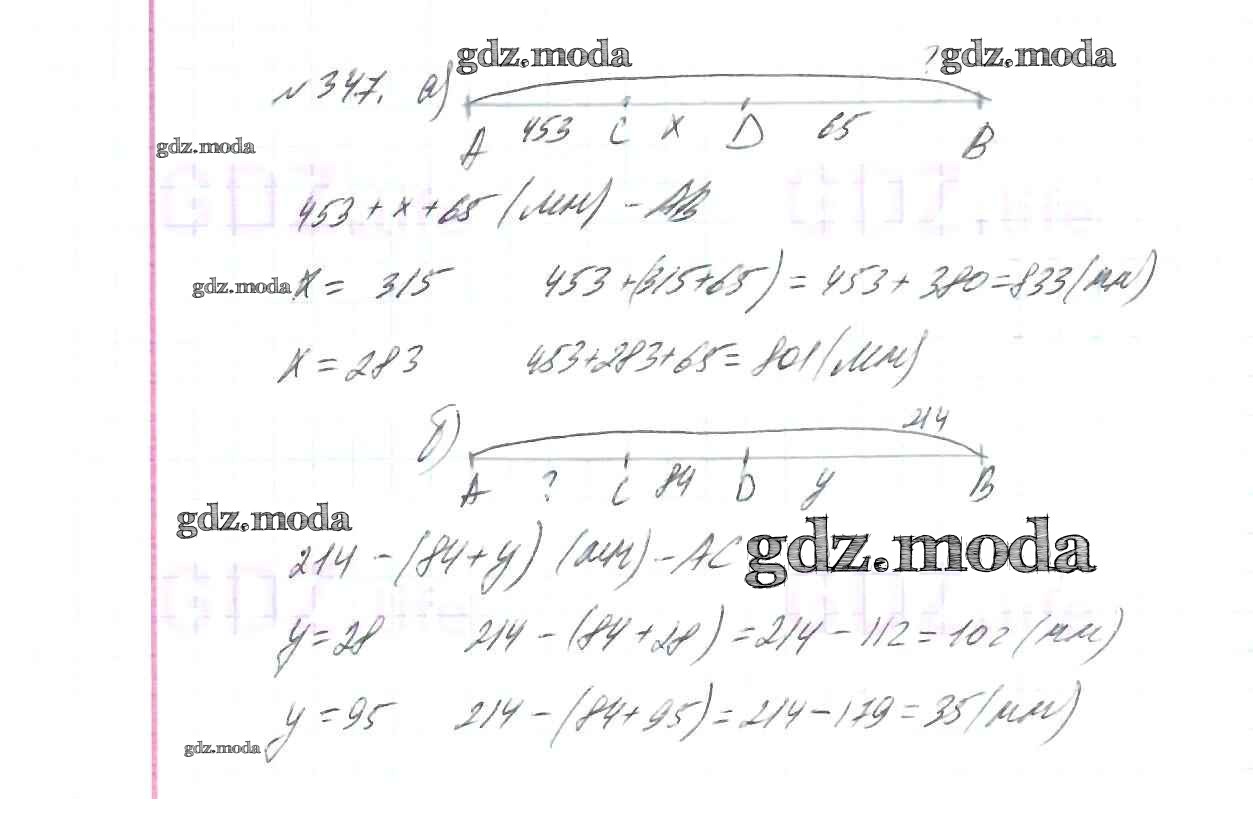 gdz.moda ? gdz.moda
№ 347. а)
A 453 C x D 65 B
gdz.moda
453 + x + 65 (мм) - AB
gdz.moda x = 315 453 + (315+65) = 453 + 380 = 833 (мм)
x = 283 453+283+65 = 801 (мм)
б) 214
A ? C 84 D y B
gdz.moda
214 - (84 + y) (мм) - AC gdz.moda
y = 28 214 - (84 + 28) = 214 - 112 = 102 (мм)
y = 95 214 - (84 + 95) = 214 - 179 = 35 (мм)
gdz.moda